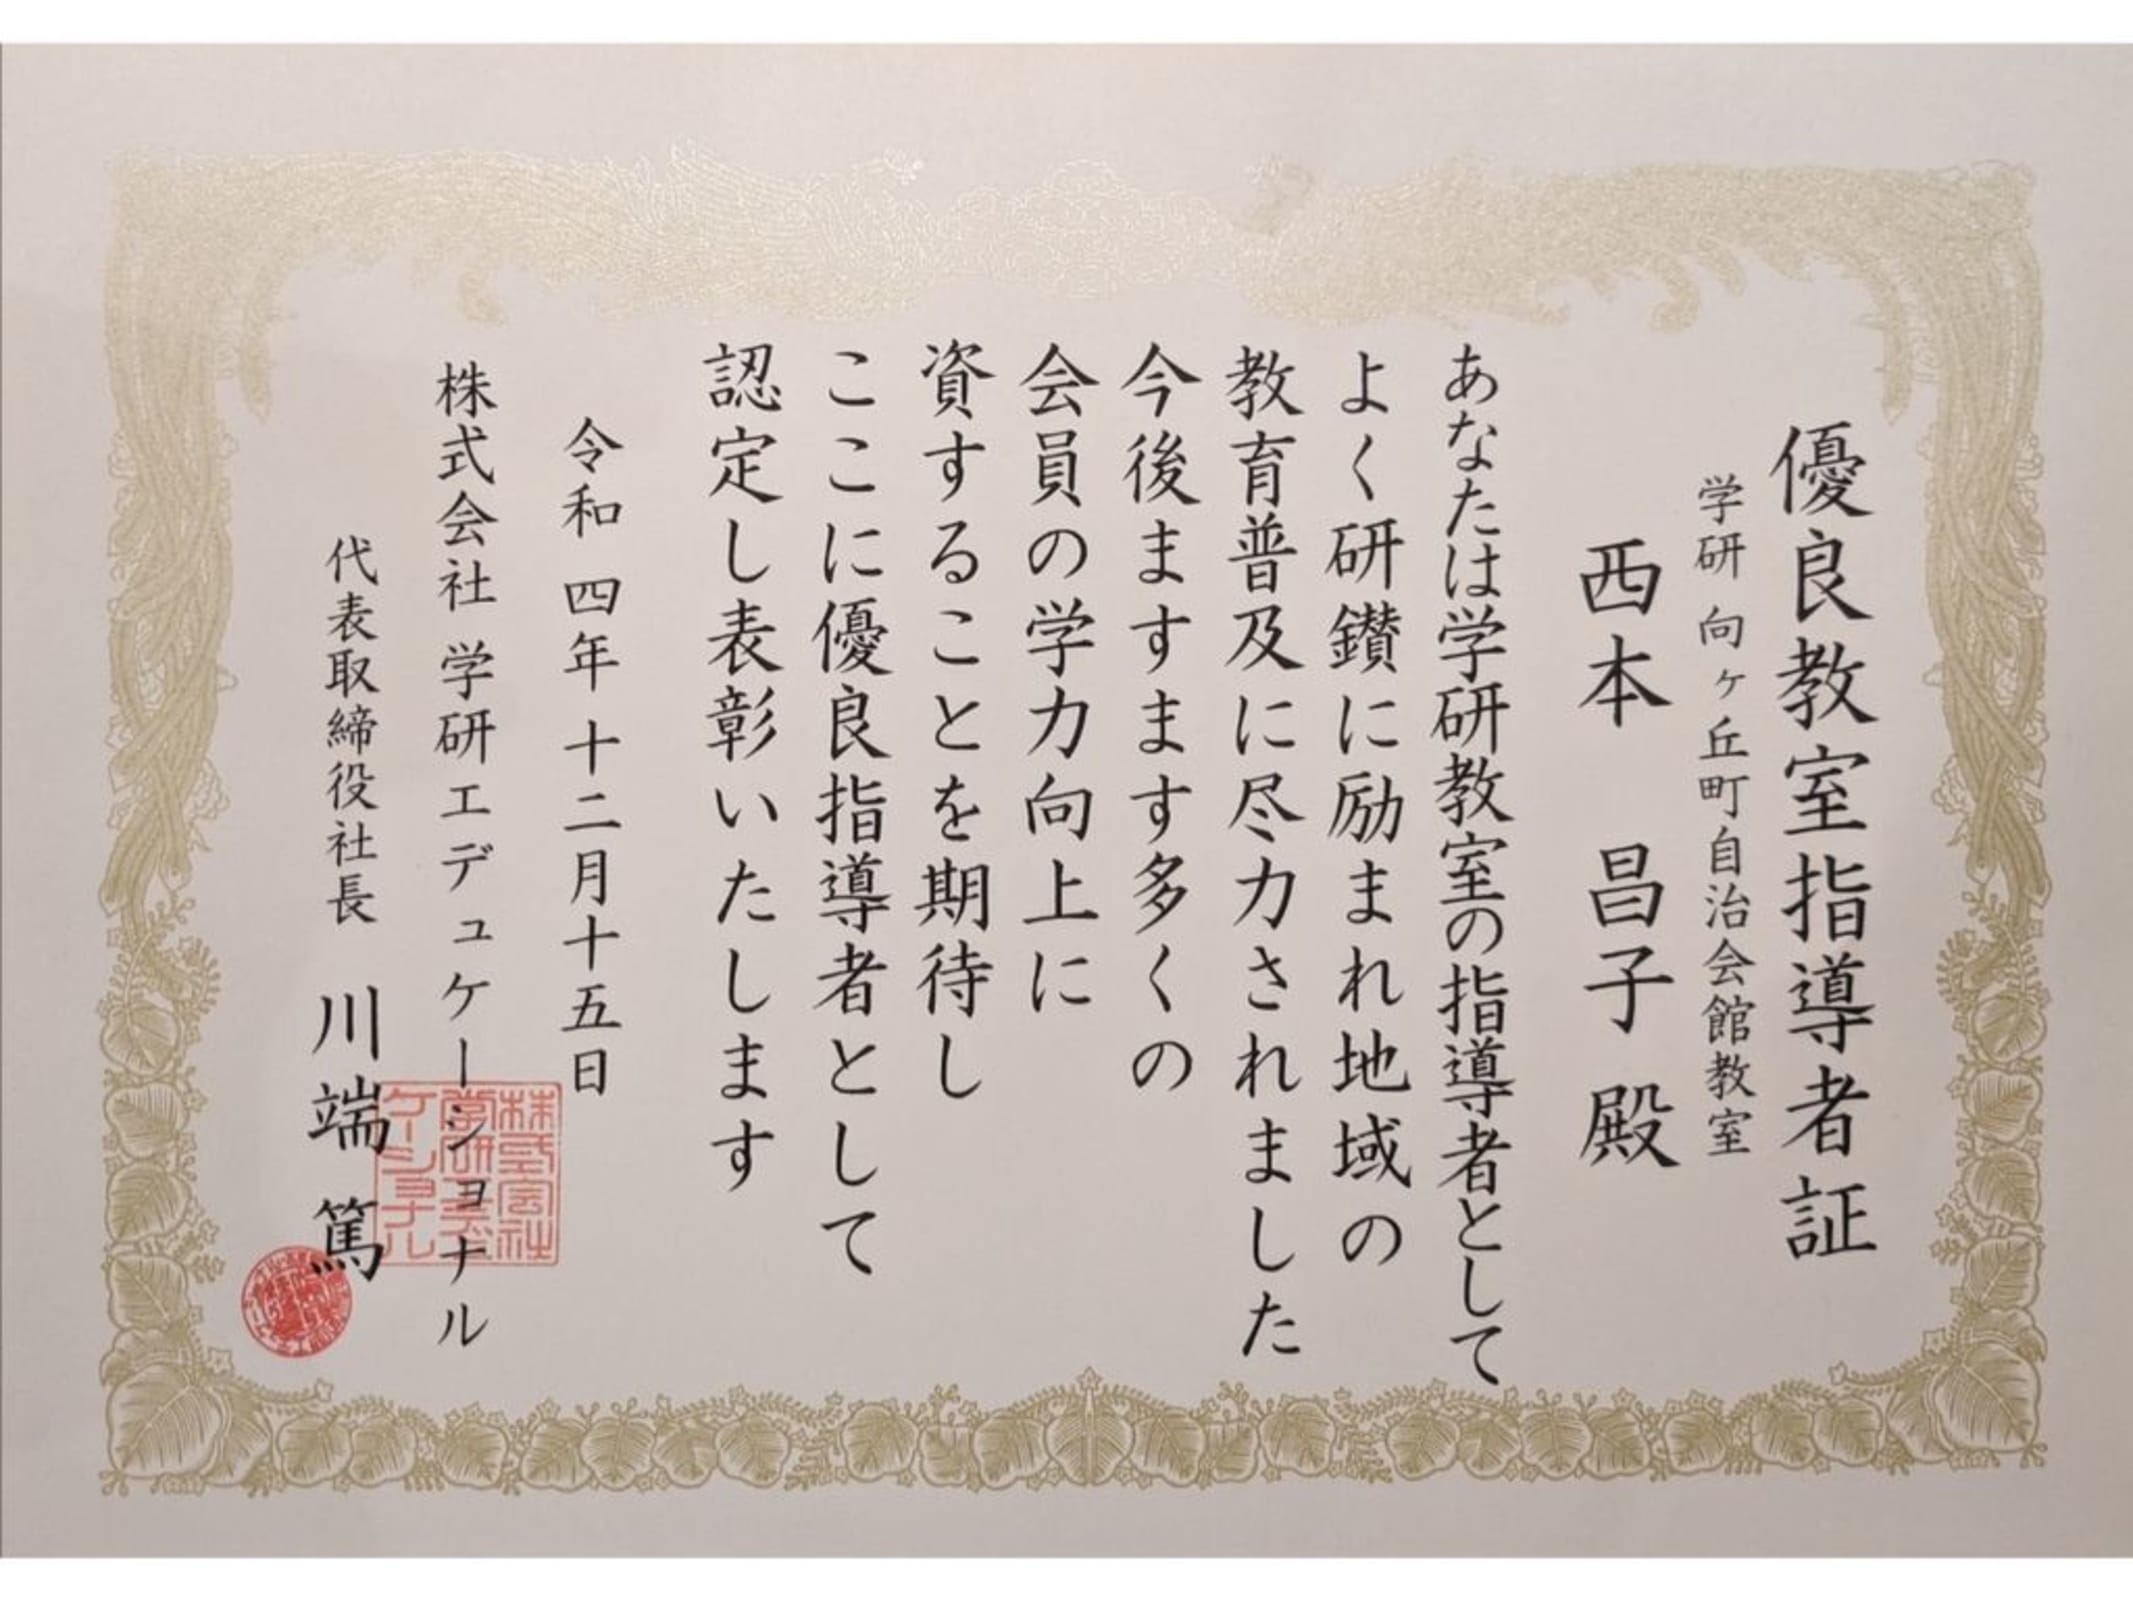 優良教室指導者証
学研 向ヶ丘町自治会館教室
西本 昌子 殿
あなたは学研教室の指導者として
よく研鑚に励まれ地域の
教育普及に尽力されました
今後ますます多くの
会員の学力向上に
資することを期待し
ここに優良指導者として
認定し表彰いたします
令和 四年 十二月十五日
株式会社 学研エデュケーショナル
代表取締役社長 川端 篤
株式会社
学研エデュ
ケーショナル